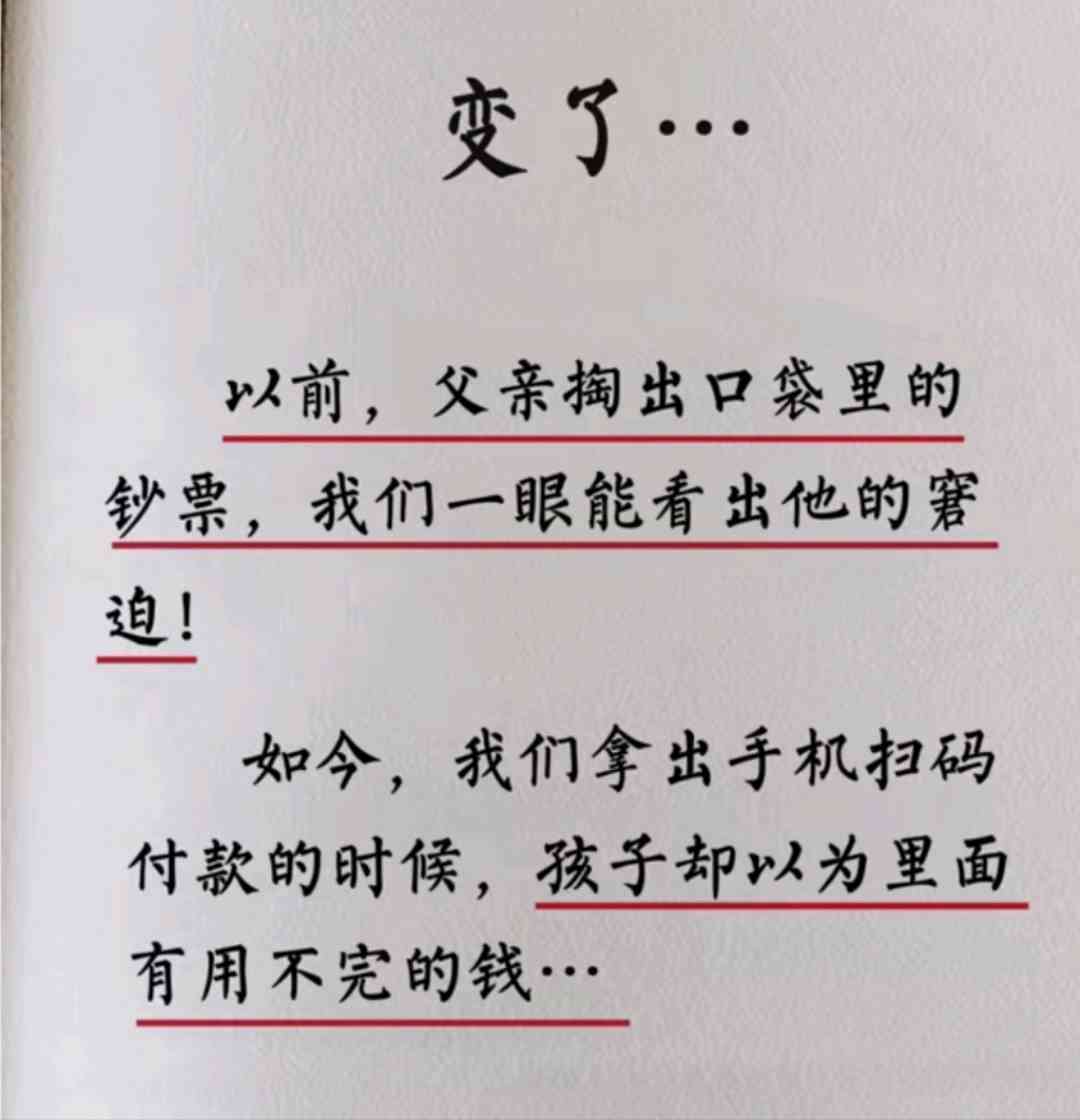 变了…
以前，父亲掏出口袋里的
钞票，我们一眼能看出他的窘
迫！
如今，我们拿出手机扫码
付款的时候，孩子却以为里面
有用不完的钱…